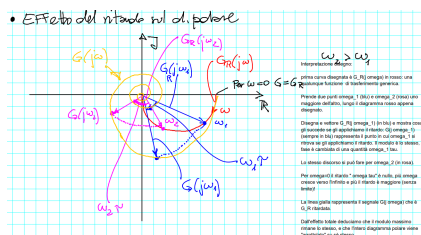 • EFFetto del ritardo sul d. polare
G_R(jω₂)
ω₂ > ω₁
G(jω)
G_R(jω₁)
G_R(jω)
Per ω=0 G=G_R
G(jω₂)
ω
ω₂
ω₁
R
ω₁τ
G(jω₁)
ω₂τ
Interpretazione disegno:
prima curva disegnata è G_R(j omega) in rosso: una
qualunque funzione di trasferimento generica
Prende due punti omega_1 (blu) e omega_2 (rosa) uno
maggiore dell'altro, lungo il diagramma rosso appena
disegnato.
Disegna e vettore G_R(j omega_1) (in blu) e mostra cosa
gli succede se gli applichiamo il ritardo: G(j omega_1)
(sempre in blu) rappresenta il punto in cui omega_1 si
ritrova se gli applichiamo il ritardo. Il modulo è lo stesso, la
fase è cambiata di una quantità omega_1 tau.
Lo stesso discorso si può fare per omega_2 (in rosa)
Per omega=0 il ritardo " omega tau" è nullo, più omega
cresce verso l'infinito e più il ritardo è maggiore (senza
limite)!
La linea gialla rappresenta il segnale G(j omega) che è
G_R ritardata.
Dall'effetto totale deduciamo che il modulo massimo
rimane lo stesso, e che l'intero diagramma polare viene